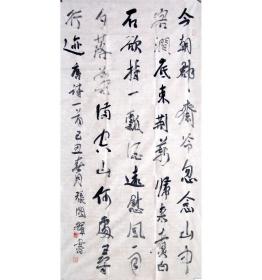 今朝郡齋冷忽念山中
客澗底束荊薪歸來煮白
石欲持一瓢酒遠慰風雨
夕落葉滿空山何處尋
行迹 唐詩一首己丑春月張國輝書